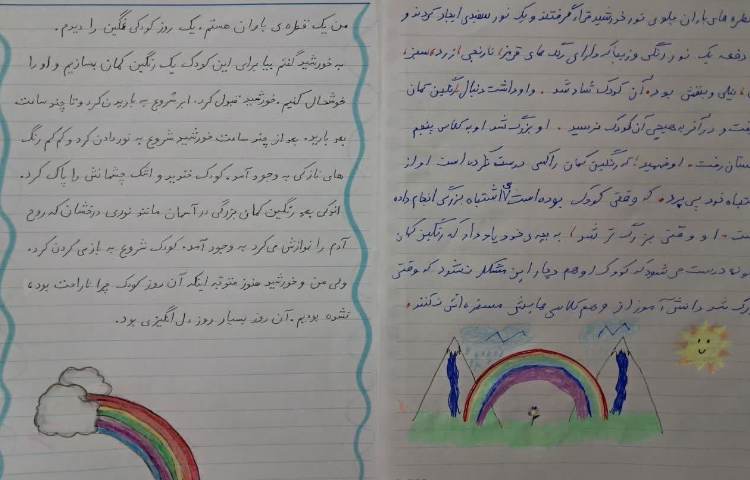 قطره های باران جلوی نور خورشید قرار گرفتند و یک نور سفیدی ایجاد کردند و
دفعه یک نور رنگی و زیبا که دارای رنگ های قرمز، نارنجی، زرد، سبز،
نیلی و بنفش بود. آن کودک شاد شد. و او داشت دنبال رنگین کمان
رفت و در آخر به هیچی آن کودک نرسید. او بزرگ شد او به کلاس پنجم
رفت. او فهمید که رنگین کمان را کسی درست نکرده است او از
اشتباه خود پی برد. که وقتی کودک بوده است اشتباه بزرگی انجام داده
او وقتی بزرگ تر شد، به بچه ی خود یاد داد که رنگین کمان
درست می شود که کودک او هم دچار این مشکل نشود که وقتی
بزرگ شد دانش آموزان و هم کلاسی هایش مسخره اش نکنند.
من یک قطره ی باران هستم. یک روز کودکی غمگین را دیدم.
به خورشید گفتم بیا برای این کودک یک رنگین کمان بسازیم و او را
خوشحال کنیم. خورشید قبول کرد. ابر شروع به باریدن کرد و تا چند ساعت
بعد بارید. بعد از چند ساعت خورشید شروع به نور دادن کرد و کم کم رنگ
های نازکی به وجود آمد. کودک خندید و اشک چشمانش را پاک کرد.
اندکی بعد رنگین کمان بزرگی در آسمان مانند نوری درخشان که روح
آدم را نوازش می کرد به وجود آمد. کودک شروع به بازی کردن کرد.
ولی من و خورشید هنوز متوجه اینکه آن روز کودک چرا ناراحت بود،
نشده بودیم. آن روز بسیار روز دل انگیزی بود.